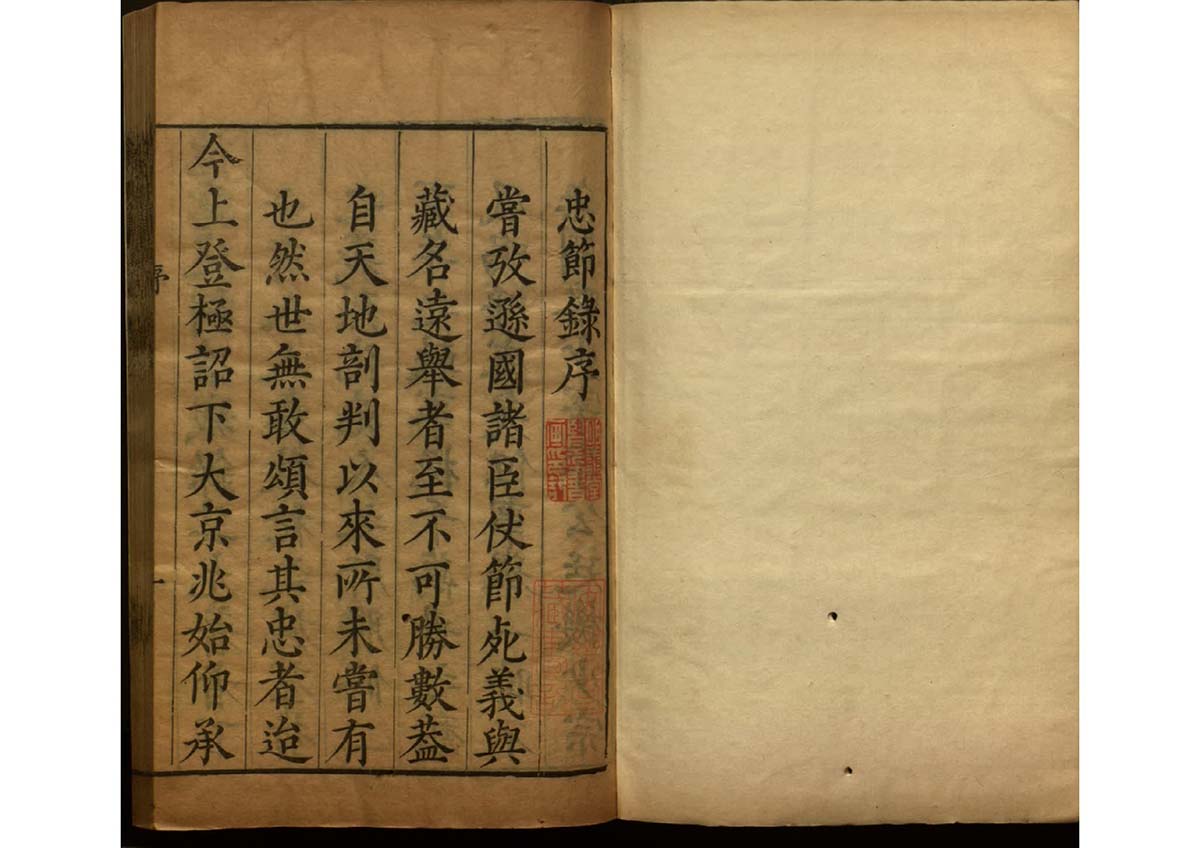 忠節錄序
嘗攷遜國諸臣仗節死義與
藏名遠舉者至不可勝數葢
自天地剖判以來所未嘗有
也然世無敢頌言其忠者迨
今上登極詔下大京兆始仰承
序
一